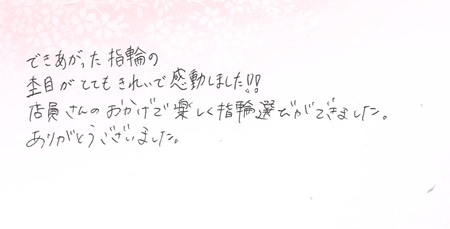 できあがった指輪の
杢目がとてもきれいで感動しました!!
店員さんのおかげで楽しく指輪選びができました。
ありがとうございました。